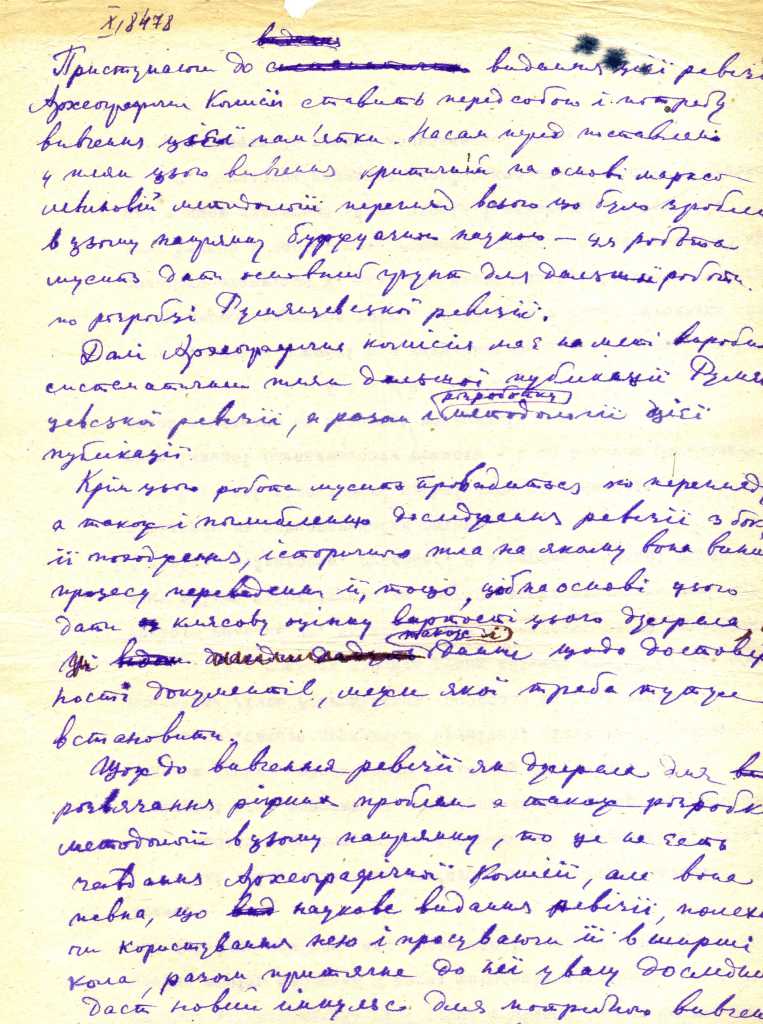 X, 18478
видання
Приступаючи до видання цієї ревізії
Археографична Комисія ставить перед собою і потребу
вивчення цієї пам'ятки. Насам перед поставлено
у плян цього вивчення критичний на основі марксо-
ленинській методології перегляд всього що було зробле
в цьому напрямку буржуазною наукою — ця робота
мусить дати основний ґрунт для дальшої роботи
по розробці Румянцевської ревізії.
Далі Археографична комісія має на меті вироби
систематичний плян дальшої публікації Румя
розробку
цевської ревізії, а разом і методології цієї
публікації
Крім цього робота мусить провадиться по перегляду
а також і поглибленню дослідження ревізії з боку
її походження, історичного тла на якому вона вини
процесу переведення її, тощо, щоб на основі цього
дати клясову оцінку вартості цього джерела
також і
Ці данні щодо достовір
ности документів, межи якої треба тут
встановити.
Щож до вивчення ревізії як джерела для
розвязання ріжних проблем а також розробк
методології в цьому напрямку, то це не єсть
завдання Археографічної Комісії, але вона
певна, що наукове видання ревізії, полегш
чи користування нею і просуваючи її в ширші
кола, разом притягне до неї увагу дослідни
даст новий імпульс для потрібного вивчен